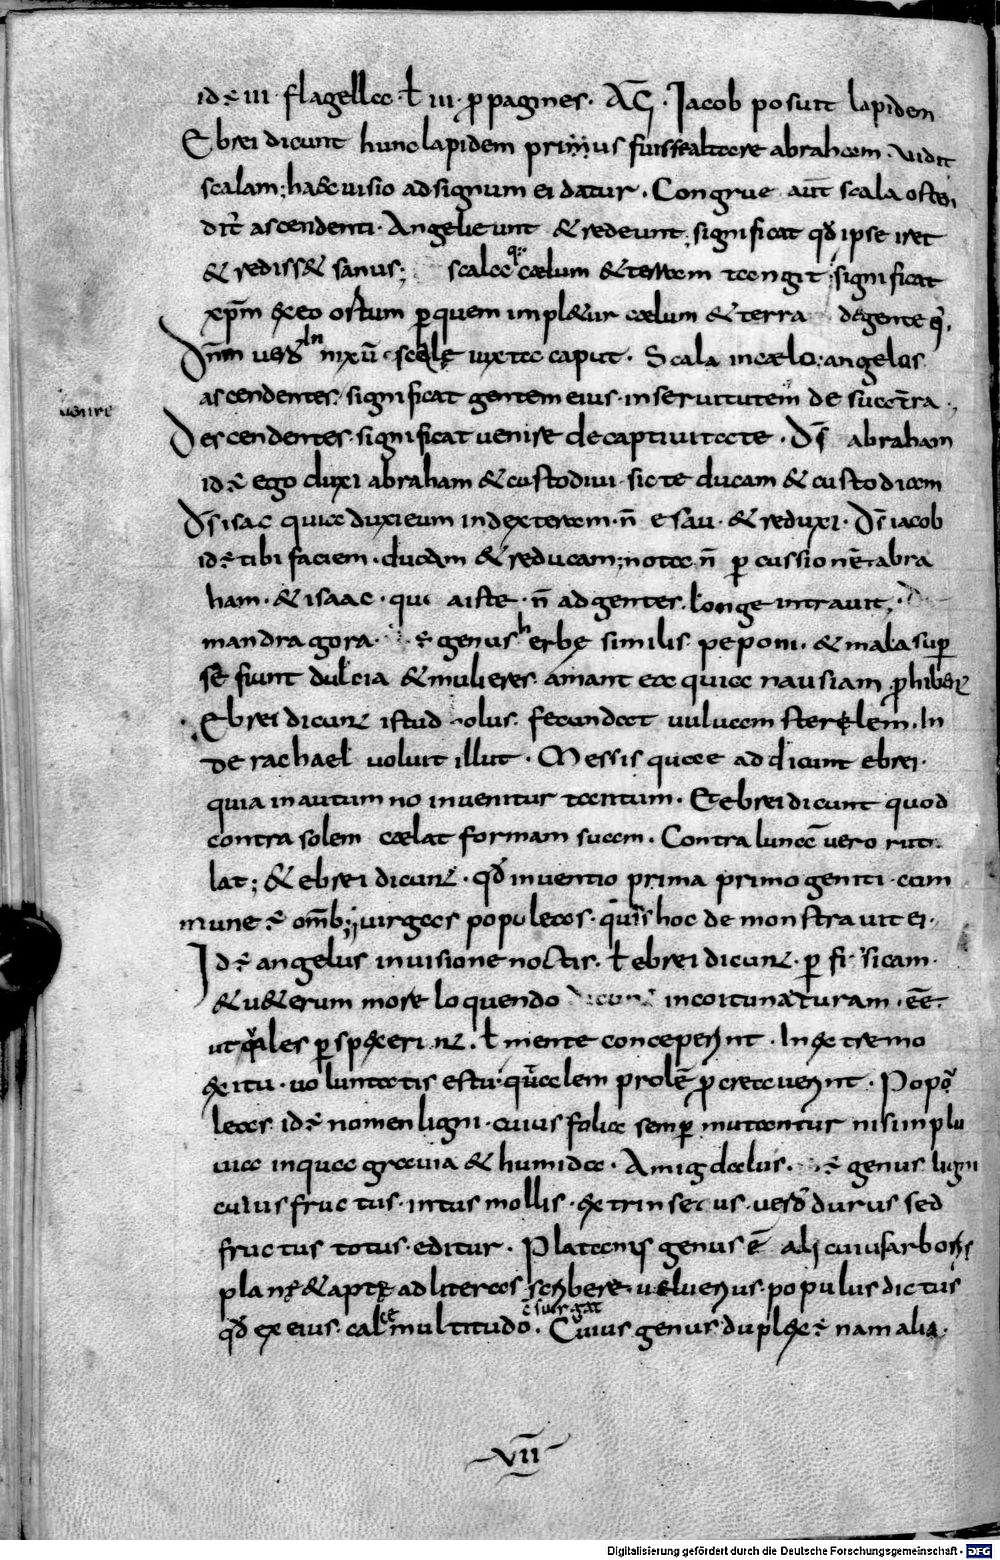 id ÷ iii · flagella · ł iii · ꝓpagines · AG̅ · Iacob posuit lapidem
Ebrei dicunt hunc lapidem primus fuisse altare abraham · vidit
scalam; haec visio ad signum ei datur · Congrue aut̄ scala osten
dit̄ ascendenti · Angeli eunt & redeunt; significat qđ ipse iret
& rediss& sanus; scala q: caelum & terram tangit; significat
xp̄m ex eo ortum ꝑ quem impl&ur caelum & terra de gente
Dn̄m vero In nixū scalę iuxta caput · Scala in caelo: angelos
ascendentes; significat gentem eius · in seruitutem de
venire
Descendentes · significat venire de captiuitate · Ds̄ abraham
id ÷ ego duxi abraham & custodiui · sic te ducam & custodiam
Ds̄ isac quia duxi eum in dexteram · n̄ esau · & reduxi · Ds̄ iacob
id ÷ tibi faciem · ducam & reducam; nota n̄ ꝑcussionē abra
ham · & isaac · qui a iste · n̄ ad gentes longe intrauit;
mandragora · ÷ genus herbę similis peponi · & mala sup̱
se fiunt dulcia & mulieres amant ea quia nausiam ꝓhib&
Ebrei dicunt istud olus · fecundat uuluam sterelem · In
de rachael voluit illut · Messis quae ad dicunt ebrei ·
quia in autumno inuenitur tantum · Et ebrei dicunt quod
contra solem caelat formam suam · Contra lunā vero ruti
lat; & ebrei dicunt · qđ inuentio prima primogeniti · com
mune ÷ om̄b; virgas populeas · quis hoc demonstrauit ei ·
Id ÷ angelus in visione noctis · ł ebrei dicunt · ꝑ fisicam ·
& u&erum more loquendo dicunt in coitu naturam · eē ·
ut quales ꝑspexerint · ł mente conceperunt · In extremo
exitu · voluntatis estu · qualem prolē ꝓcreauerunt · Popu
leas id ÷ nomen ligni · cuius folia semꝑ mutantur nisi in plu
uia in qua grauia & humida · Amigdalus · ÷ genus ligni
cuius fructus · intus mollis · extrinsecus · vero durus sed
fructus totus · editur · Platanis genus ē alii cuius arboris
planę & aptę ad literas scribere · u& uerius · populus dictus
qđ ex eius calce multitudo surgat · Cuius genus duplex ÷ nam alia ·
VII
Digitalisierung gefördert durch die Deutsche Forschungsgemeinschaft - DFG